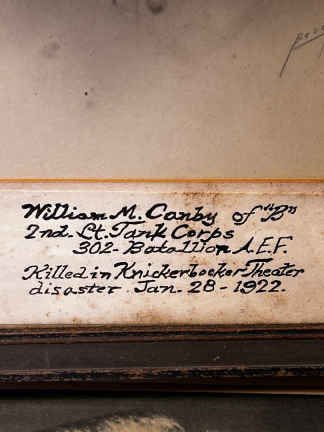 William M. Canby of "B"
2nd. Lt. Tank Corps
302- Batallion A.E.F.
Killed in Knickerbocker Theater
disaster. Jan. 28 - 1922.